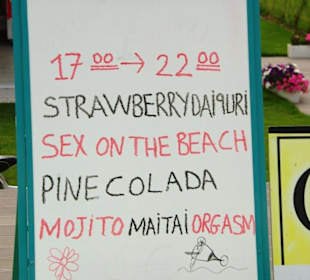 17 00 → 22 00
STRAWBERRYDAIQURI
SEX ON THE BEACH
PINECOLADA
MOJITO MAITAI ORGASM